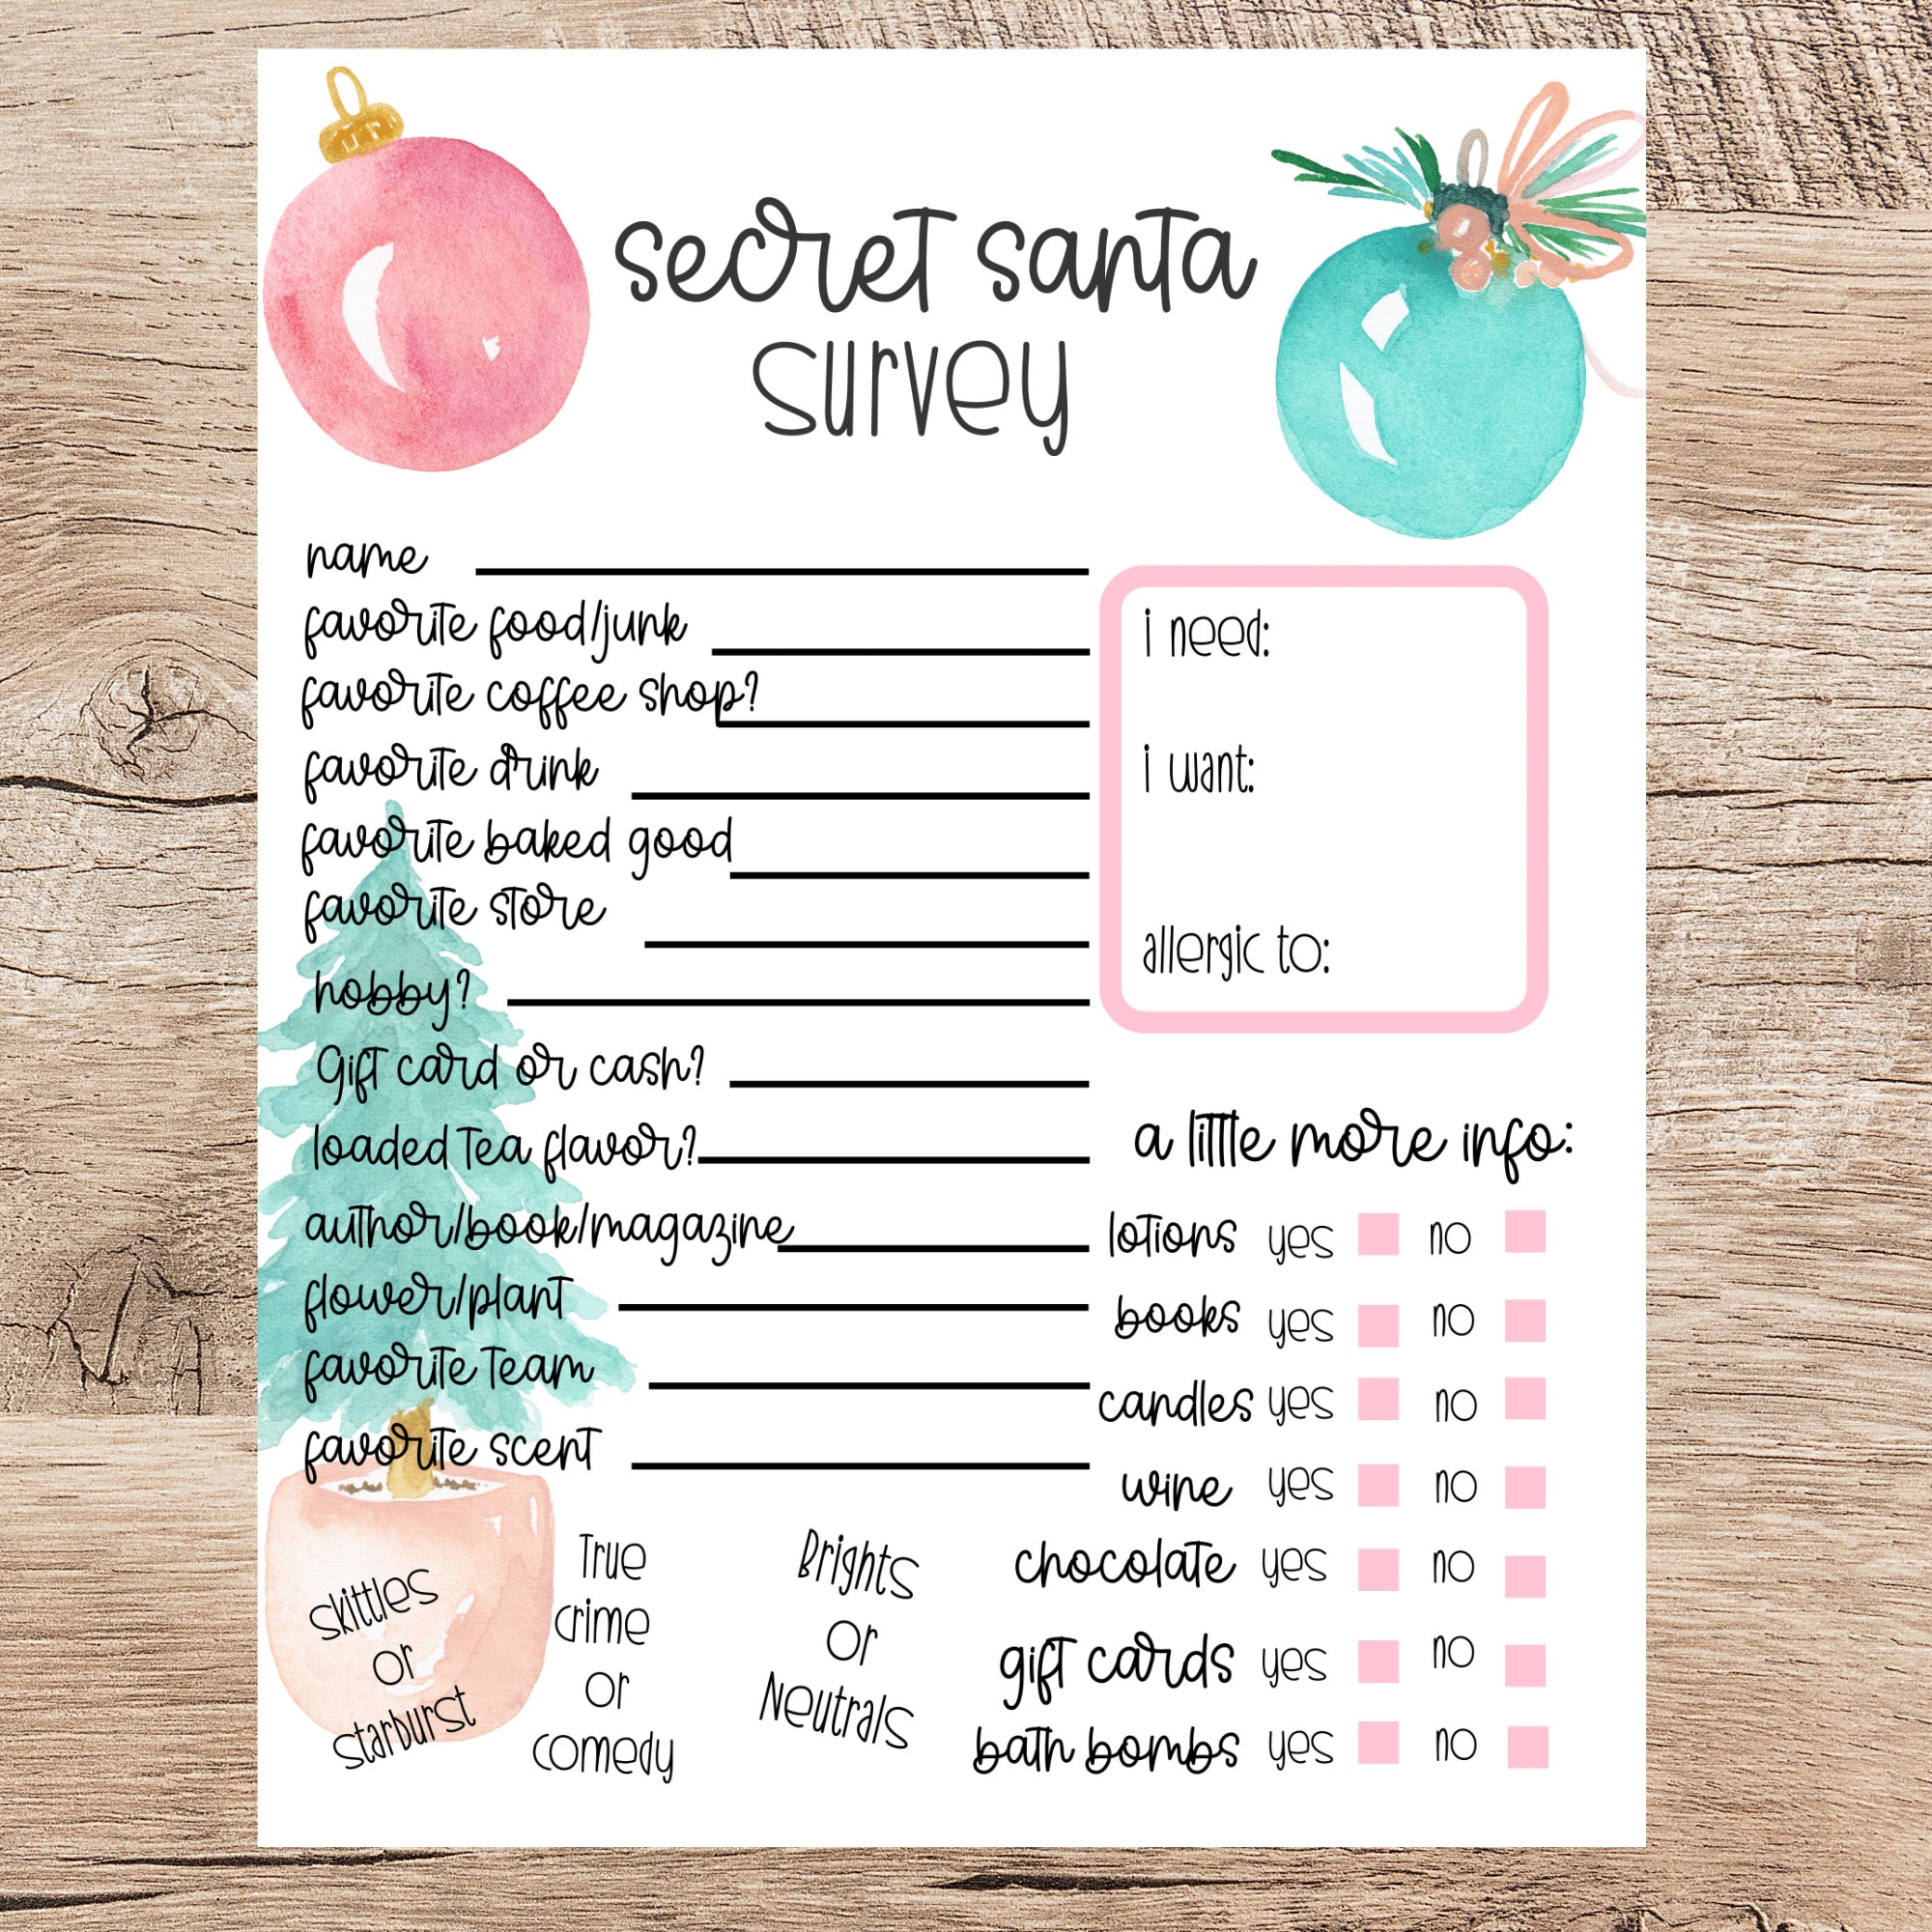 secret santa
survey
name
favorite food/junk
favorite coffee shop?
favorite drink
favorite baked good
favorite store
hobby?
Gift card or cash?
loaded tea flavor?
author/book/magazine
flower/plant
favorite team
favorite scent
i need:
i want:
allergic to:
a little more info:
lotions yes no
books yes no
candles yes no
wine yes no
chocolate yes no
gift cards yes no
bath bombs yes no
skittles
or
starburst
True
crime
or
comedy
Brights
or
Neutrals